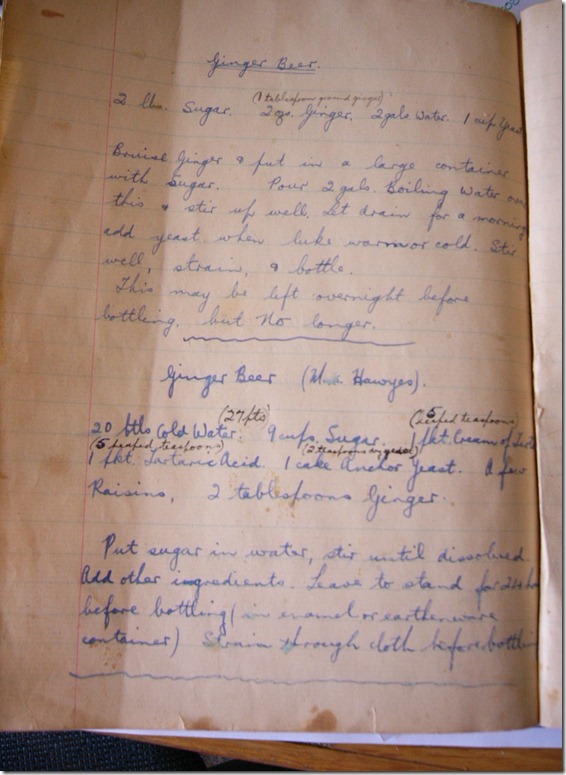 Ginger Beer.
(1 tablespoon ground ginger)
2 lbs. Sugar. 2 ozs. Ginger. 2 gals. Water. 1 cup Yeast
Bruise Ginger & put in a large container
with Sugar. Pour 2 gals. Boiling Water over
this & stir up well. Let drain for a morning
add yeast when luke warm or cold. Stir
well, strain, & bottle.
This may be left overnight before
bottling, but No longer.
Ginger Beer (Hawyes).
(27 pts) (5 heaped teaspoons)
20 btls Cold Water. 9 cups Sugar. 1 pkt. Cream of Tart
(5 heaped teaspoons) (2 teaspoons dry yeast)
1 pkt. Tartaric Acid. 1 cake Anchor Yeast. A few
Raisins, 2 tablespoons Ginger.
Put sugar in water, stir until dissolved.
Add other ingredients. Leave to stand for 24 ho
before bottling (in enamel or earthenware
container) Strain through cloth before bottling